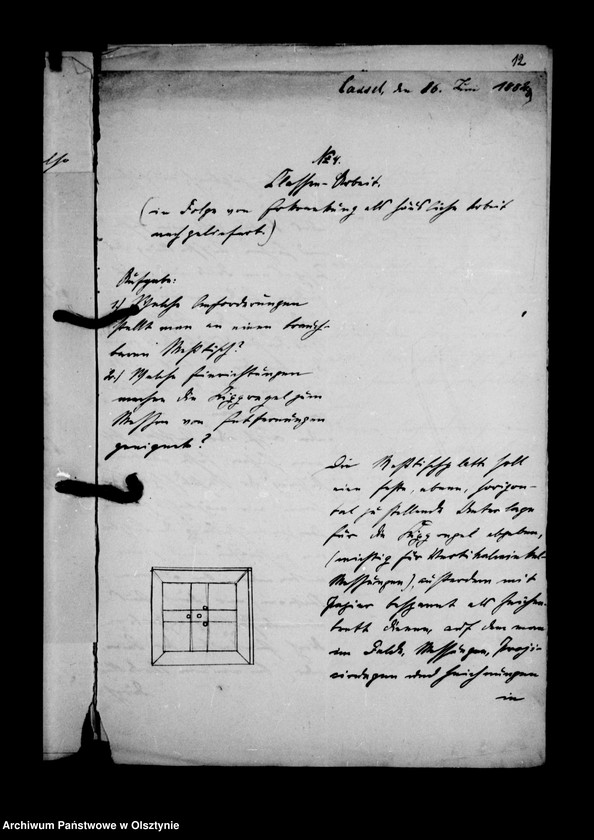 12
Cassel, den 26. Juni 188
No 4.
Klassen-Arbeit.
(in Folge von Erkrankung als häusliche Arbeit
nachgeliefert.)
Aufgabe:
1.) Welche Anforderungen
stellt man an einen brauch-
baren Meßtisch?
2.) Welche Einrichtungen
machen die Kippregel zum
Messen von Entfernungen
geeignet?
Die Meßtischplatte soll
eine feste, ebene, horizon-
tal zu stellende Unterlage
für die Kippregel abgeben,
(wichtig für Vertikalwinkel
Messungen), außerdem mit
Papier bespannt als Zeichen-
brett dienen, auf dem man
im Felde, Messungen,
und Zeichnungen
in
Archiwum Państwowe w Olsztynie